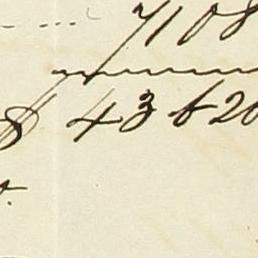 7108
$ 43620